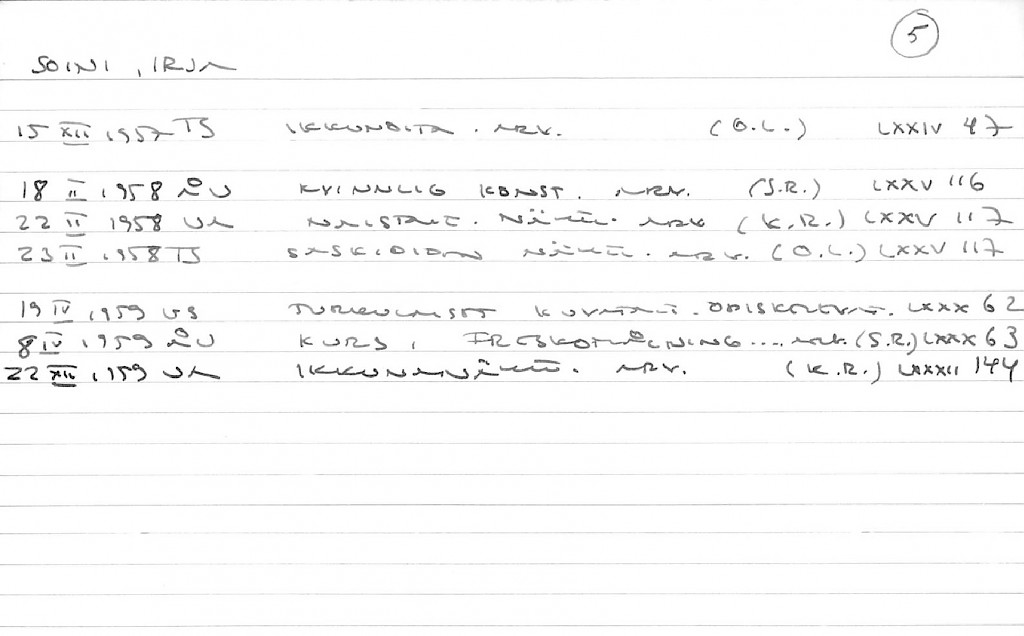 5
SOINI, IRJA
15 XII 1957 TS IKKUNOITA. ARV. (O.L.) LXXIV 47
18 II 1958 ÅU KVINNLIG KONST. ARV. (S.R.) LXXV 116
22 II 1958 UA NAISTAIT. NÄYTT. ARV. (K.R.) LXXV 117
23 II 1958 TS SASKIOIDEN NÄYTT. ARV. (O.L.) LXXV 117
19 IV 1959 US TURKULAISET KUVATAIT. OPISKELEVAT. LXXX 62
8 IV 1959 ÅU KURS I FRESKOMÅLNING.... ARV. (S.R.) LXXX 63
22 XII 1959 UA IKKUNANÄYTT. ARV. (K.R.) LXXXII 144